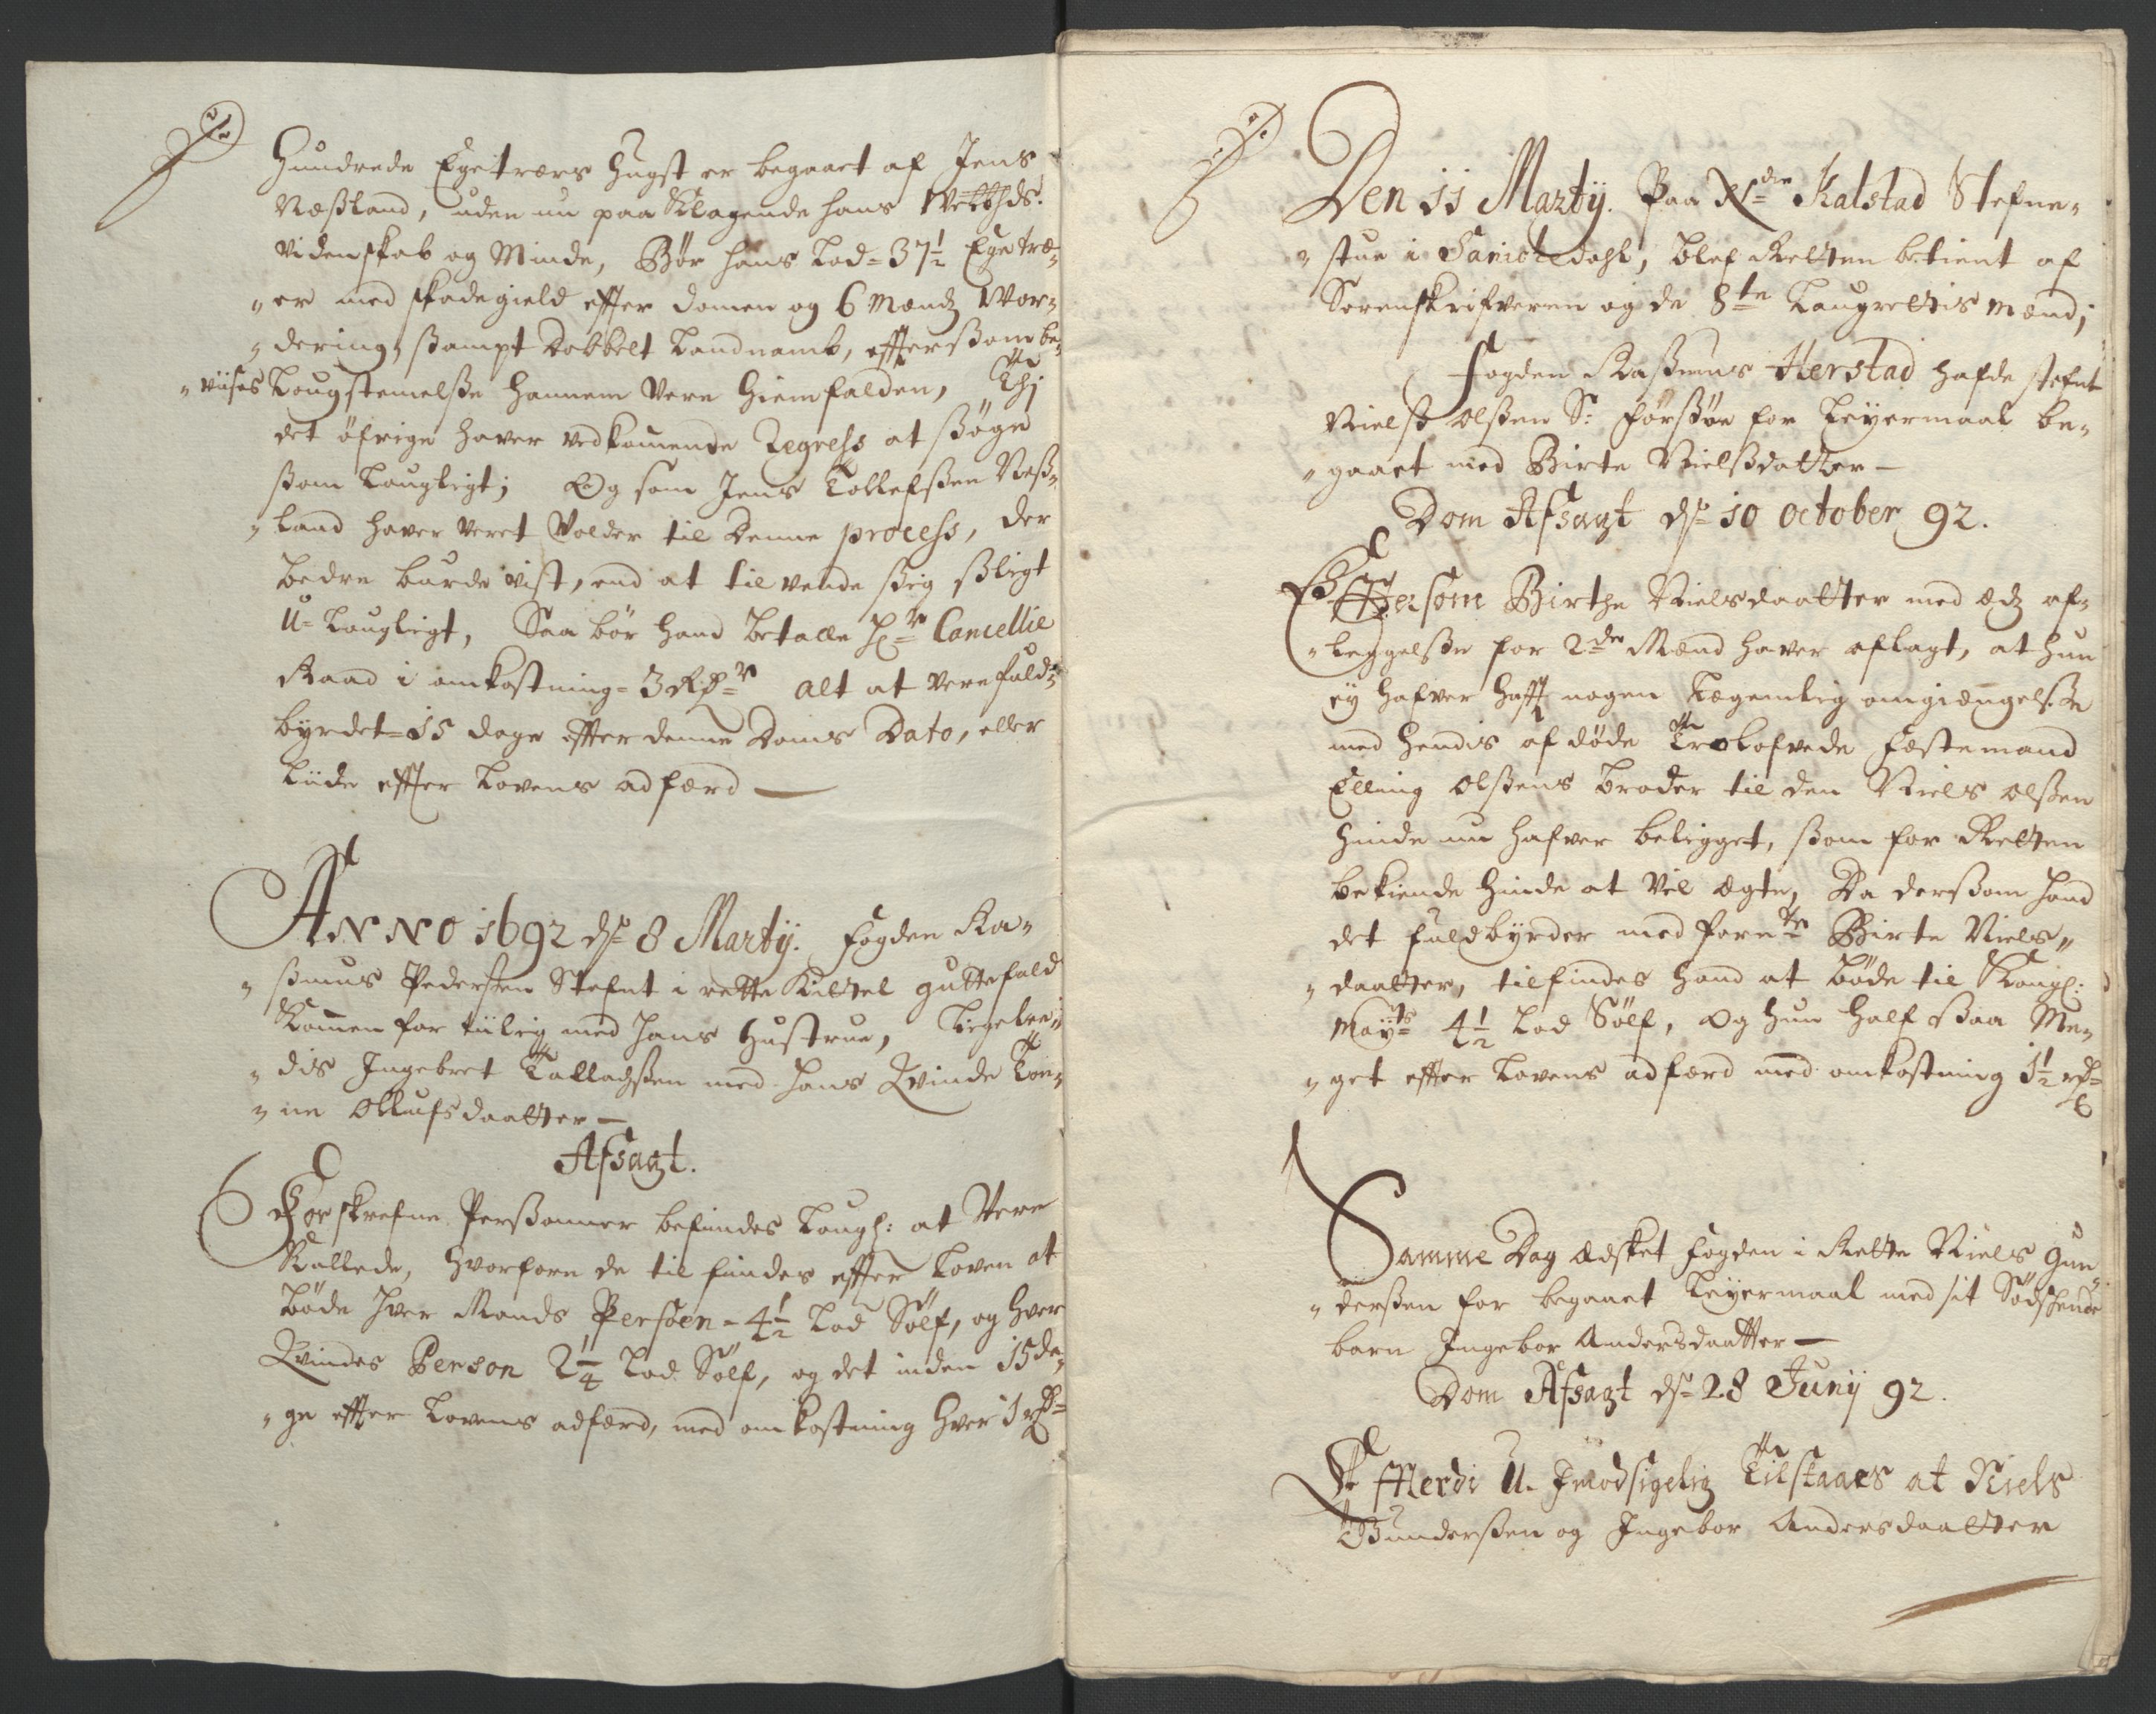 Hundrede Egetrærs Hugst er begaaet af Jens
Næßland, uden nu paa Klagende hans
videnskab og Minde, Bør hans Lod = 37½ Egetræ„
„er med skadegield efter domen og 6 Mændz Wor„
„dering, ßampt Dobbelt Landnamb, effterßom be„
„viises Lougstemelße hannem Vere hiemfalden, Thi
det öfrige haver vedkomende Regress at ßöge
ßom Lougligt; Og som Jens Tollefßen Neß„
„land haver veret Volder til denne process, der
bedre burde vist, end at tilvende ßig ßligt
U=Lougligt, Saa bör hand betalle Hr: Cancellie
Raad i omkostning = 3 Rdr alt at vere fuld„
byrdet = 15 dage effter denne Doms Dato, eller
liide effter Lovens adfærd —
ANNO 1692 ds: 8 Martij. Fogden Ra„
„ßmus Pedersen Stefnt i rette Kittel Guttefald
Kommen for tiilig med hans Hustrue, Ligelee„
„dis Ingebret Talladßen med hans Qvinde Ton„
„ne Ollufsdaatter —
Afsagt.
Forskrefne Perßonner befindes Lougl: at Vere
Kallede, hvorfore de tilfindes effter Loven at
böde hver Mands Persoen = 4½ Lod Sölf, og hver
Qvindes Person 2¼ Lod Sölf, og det inden 15 da„
„ge effter Lovens adfærd, med omkostning hver 1 rdr
Den 11 Martij. Paa Kalstad Stefne„
„stue i dahl, blef Retten betient af
Sorenskrifveren og de 8te Laugrettis mænd;
Fogden Raßmus Herstad hafde stefnt
Niels Olßen S: Forßöe for Leyermaal be„
„gaaet med Birte Nielßdatter —
Dom Afsagt ds: 10 October 92.
Effterßom Birthe Nielsdaatter med æds af„
„leggelße for 2de Mænd haver aflagt, at hun
ey hafver hafft nogen Legemlig omgiængelße
med hendis afdöde Trolofvede Fæstemand
Elling Olßens broder til den Niels Olßen
hinde nu hafver beligget, ßom for Retten
bekiende hinde at Vil ægte, Da derßom hand
det fuldbyrder med forne Birte Niels„
„daatter, tilfindes hand at böde til Kongl:
Mayts 4½ Lod Sölf, og hun half ßaa Me„
„get effter Lovens adfærd med omkostning 1½ rdr
Samme Dag ædsket Fogden i Rette Niels Gun„
„derßen for begaaet Leyermaal med sit Södschende
barn Ingebor Andersdaatter —
Dom Afsagt ds: 28 Junij 92.
Effterdi U-Imodsigelig Tilstaaes at Niels
Gunderßen og Ingebor Andersdaatter